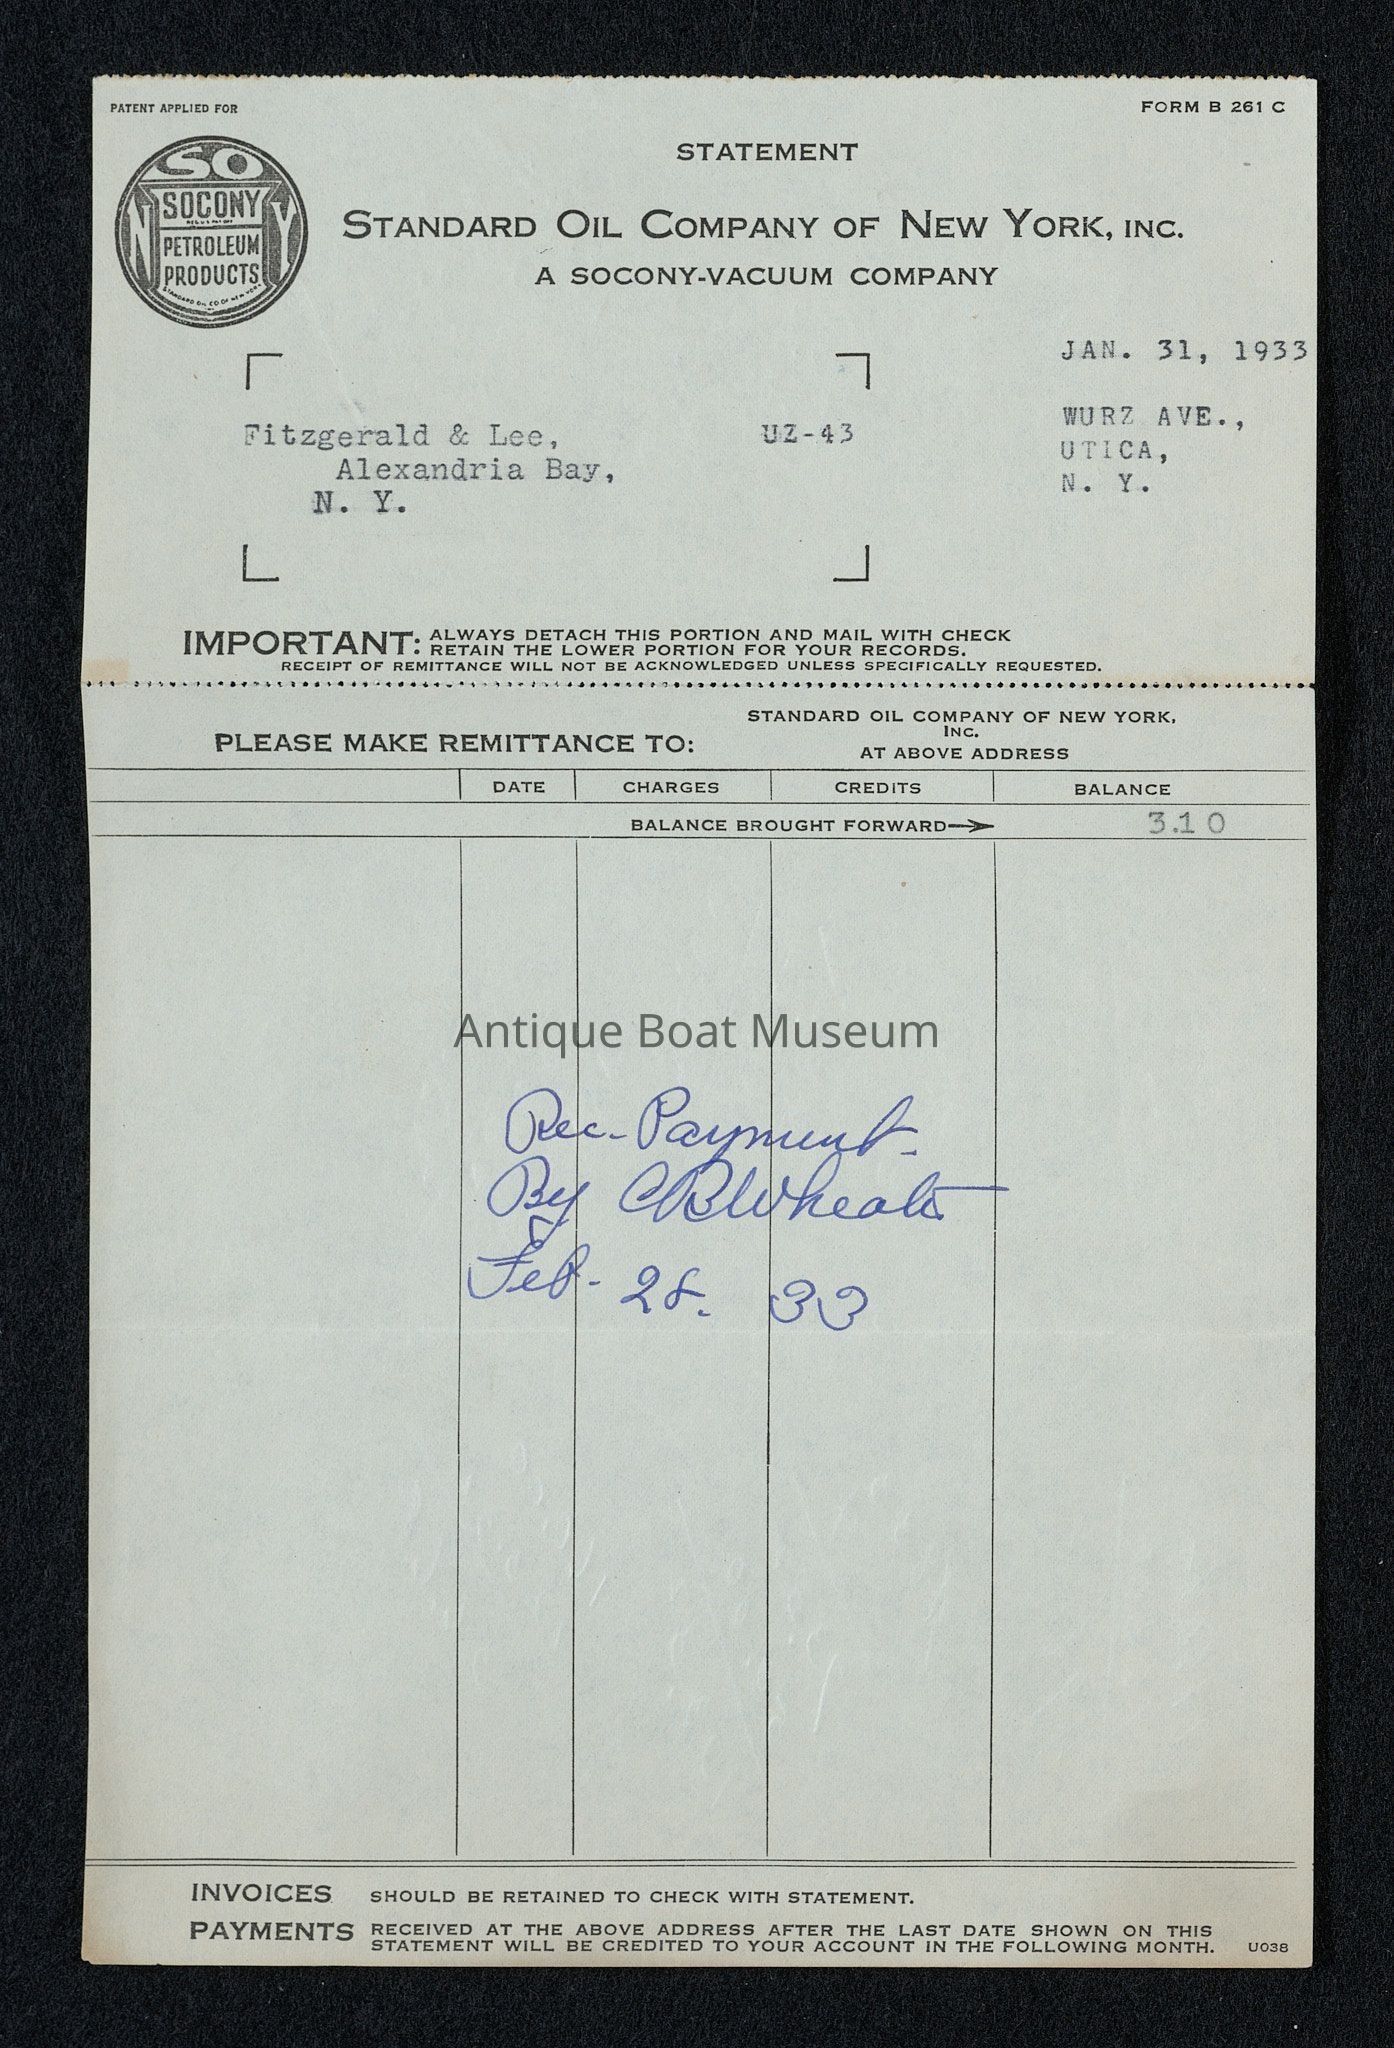 PATENT APPLIED FOR
FORM B 261 C
SO
N Y
SOCONY
REG. U.S. PAT. OFF.
PETROLEUM
PRODUCTS
STANDARD OIL CO. OF NEW YORK
STATEMENT
STANDARD OIL COMPANY OF NEW YORK, INC.
A SOCONY-VACUUM COMPANY
JAN. 31, 1933
Fitzgerald & Lee, UZ-43
Alexandria Bay,
N. Y.
WURZ AVE.,
UTICA,
N. Y.
IMPORTANT: ALWAYS DETACH THIS PORTION AND MAIL WITH CHECK
RETAIN THE LOWER PORTION FOR YOUR RECORDS.
RECEIPT OF REMITTANCE WILL NOT BE ACKNOWLEDGED UNLESS SPECIFICALLY REQUESTED.
PLEASE MAKE REMITTANCE TO:
STANDARD OIL COMPANY OF NEW YORK,
INC.
AT ABOVE ADDRESS
DATE CHARGES CREDITS BALANCE
BALANCE BROUGHT FORWARD 3.10
Antique Boat Museum
Rec. Payment.
By CB
Feb. 28. 33
INVOICES SHOULD BE RETAINED TO CHECK WITH STATEMENT.
PAYMENTS RECEIVED AT THE ABOVE ADDRESS AFTER THE LAST DATE SHOWN ON THIS
STATEMENT WILL BE CREDITED TO YOUR ACCOUNT IN THE FOLLOWING MONTH. U038